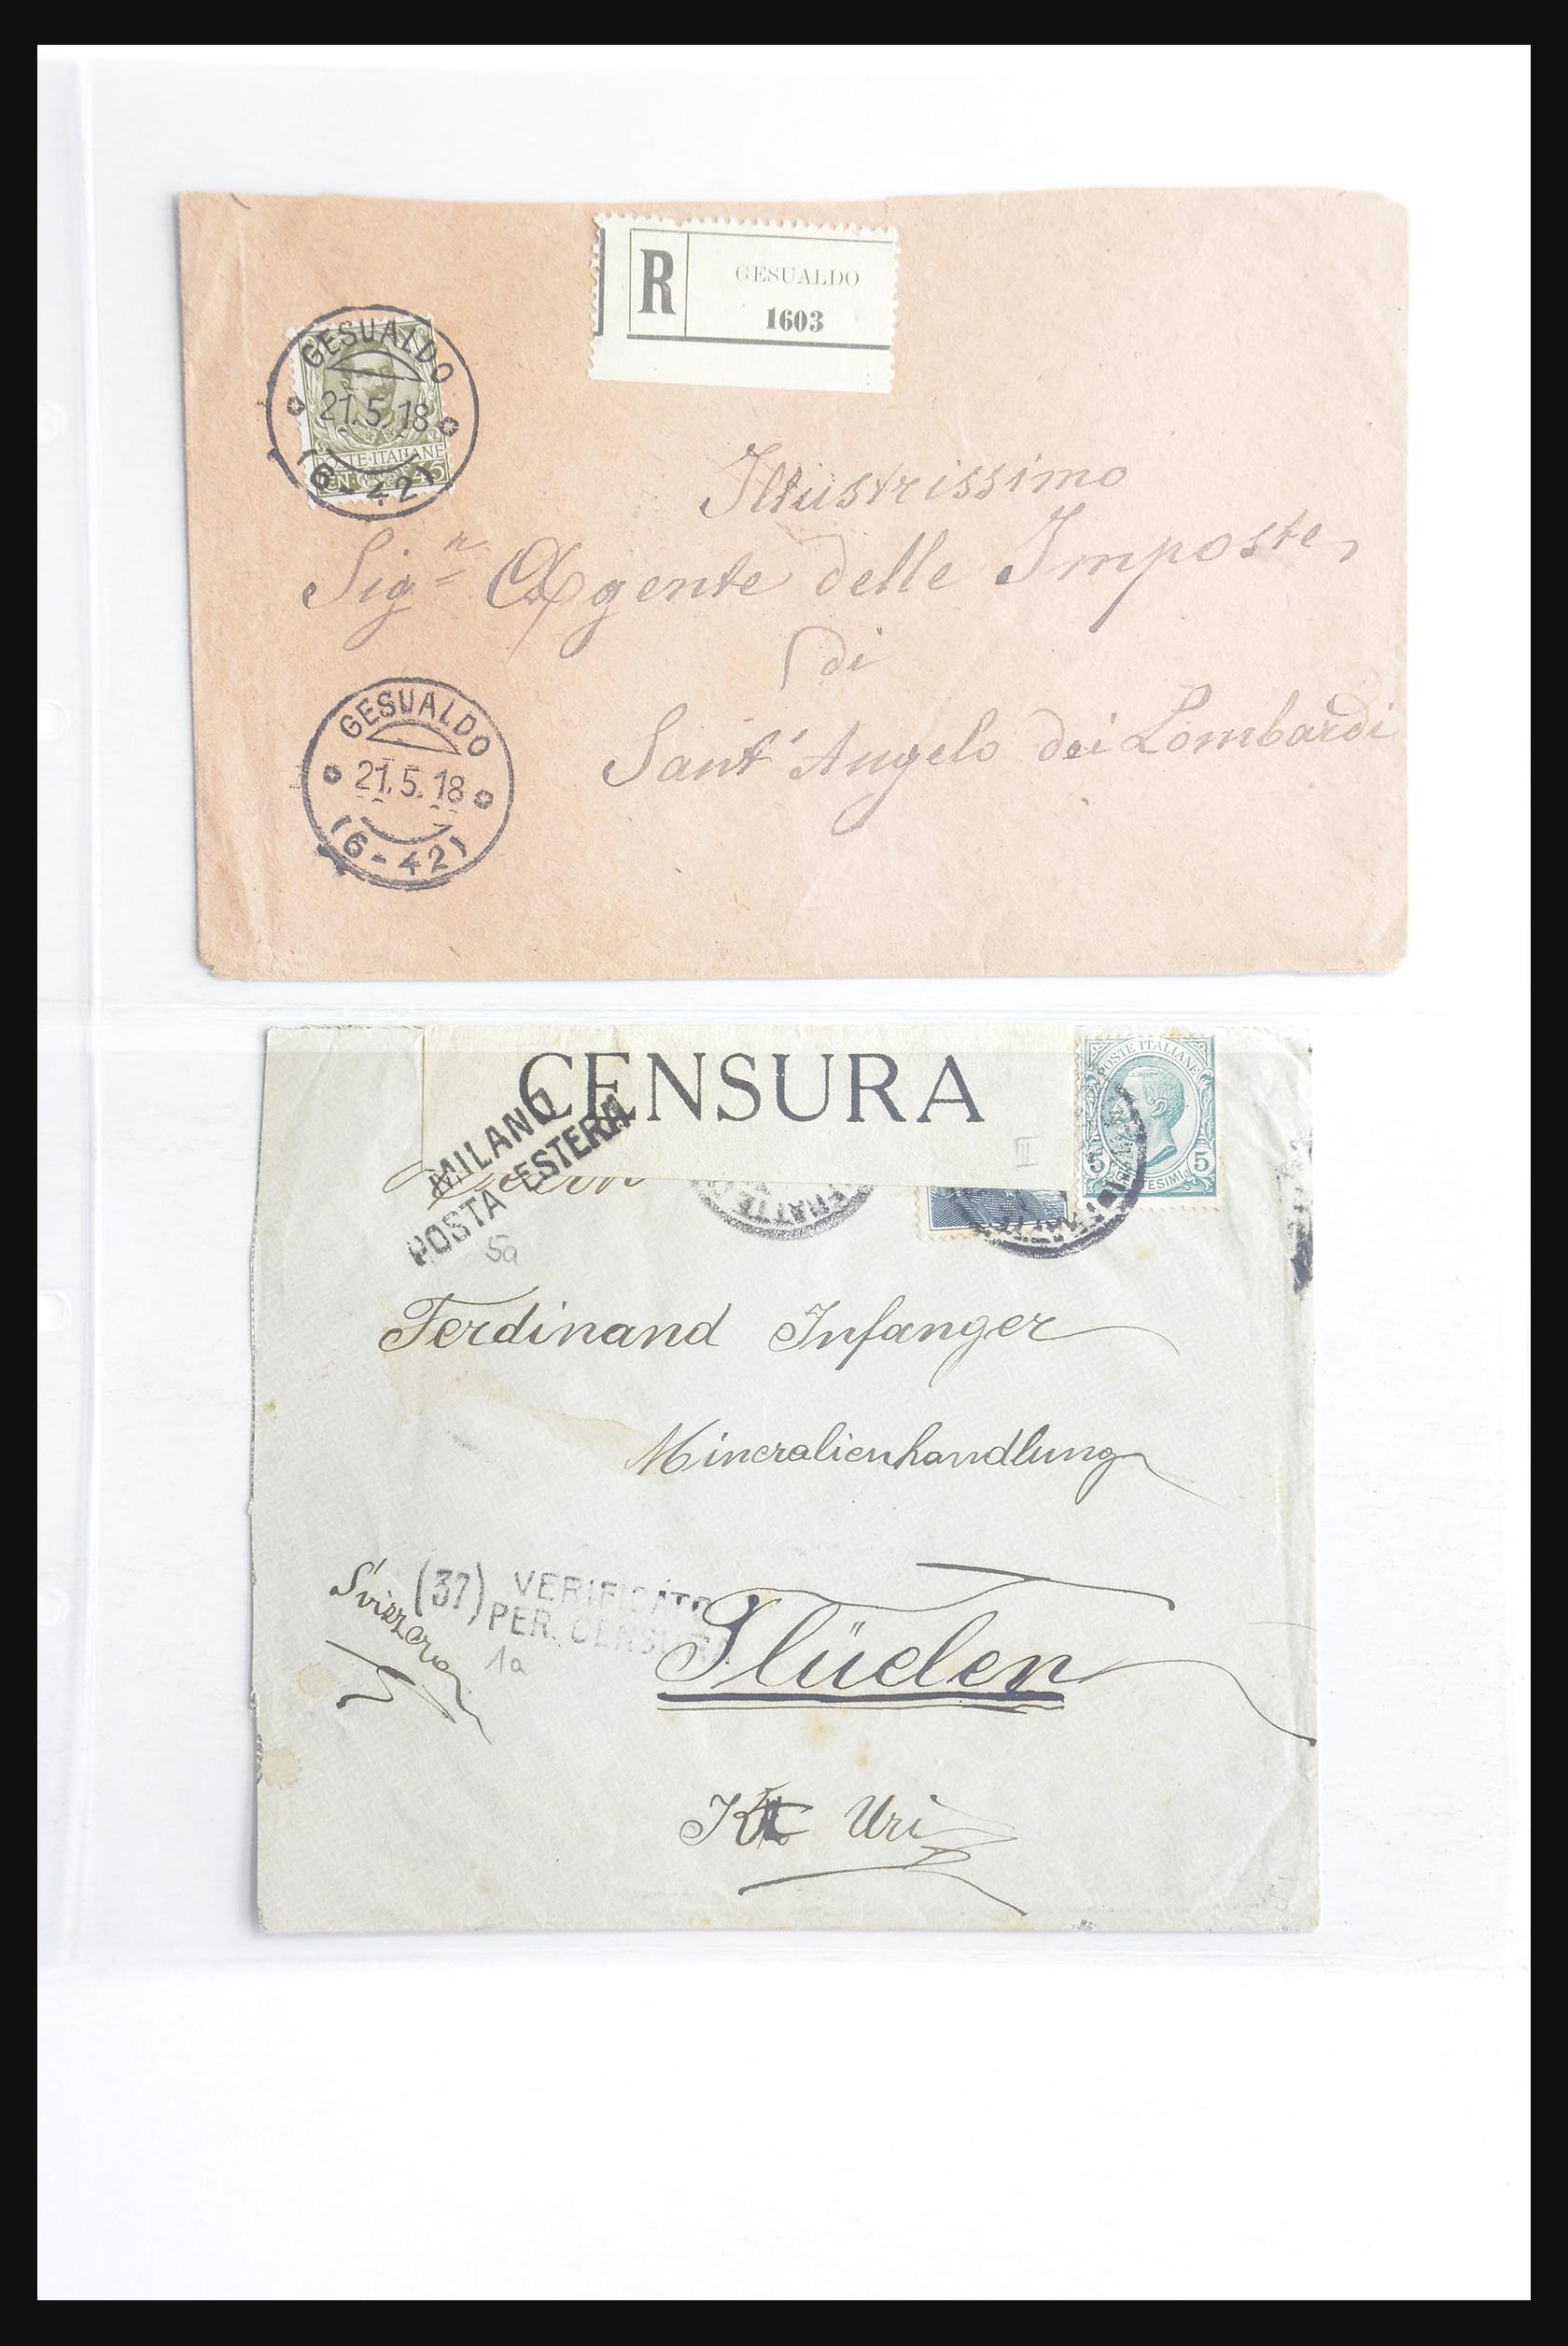 R
GESUALDO
1603
GESUALDO
21.5.18
(6-42)
POSTE·ITALIANE
45
Illustrissimo
Sig.r Agente delle Imposte,
di
Sant' Angelo dei Lombardi
GESUALDO
21.5.18
(6-42)
CENSURA
III
MILANO
POSTA ESTERA
5a
POSTE ITALIANE
5 5
Ferdinand Infanger
Mineralienhandlung
Svizzera
(37) VERIFICATO
PER CENSURA
1a
Flüelen
Kt Uri